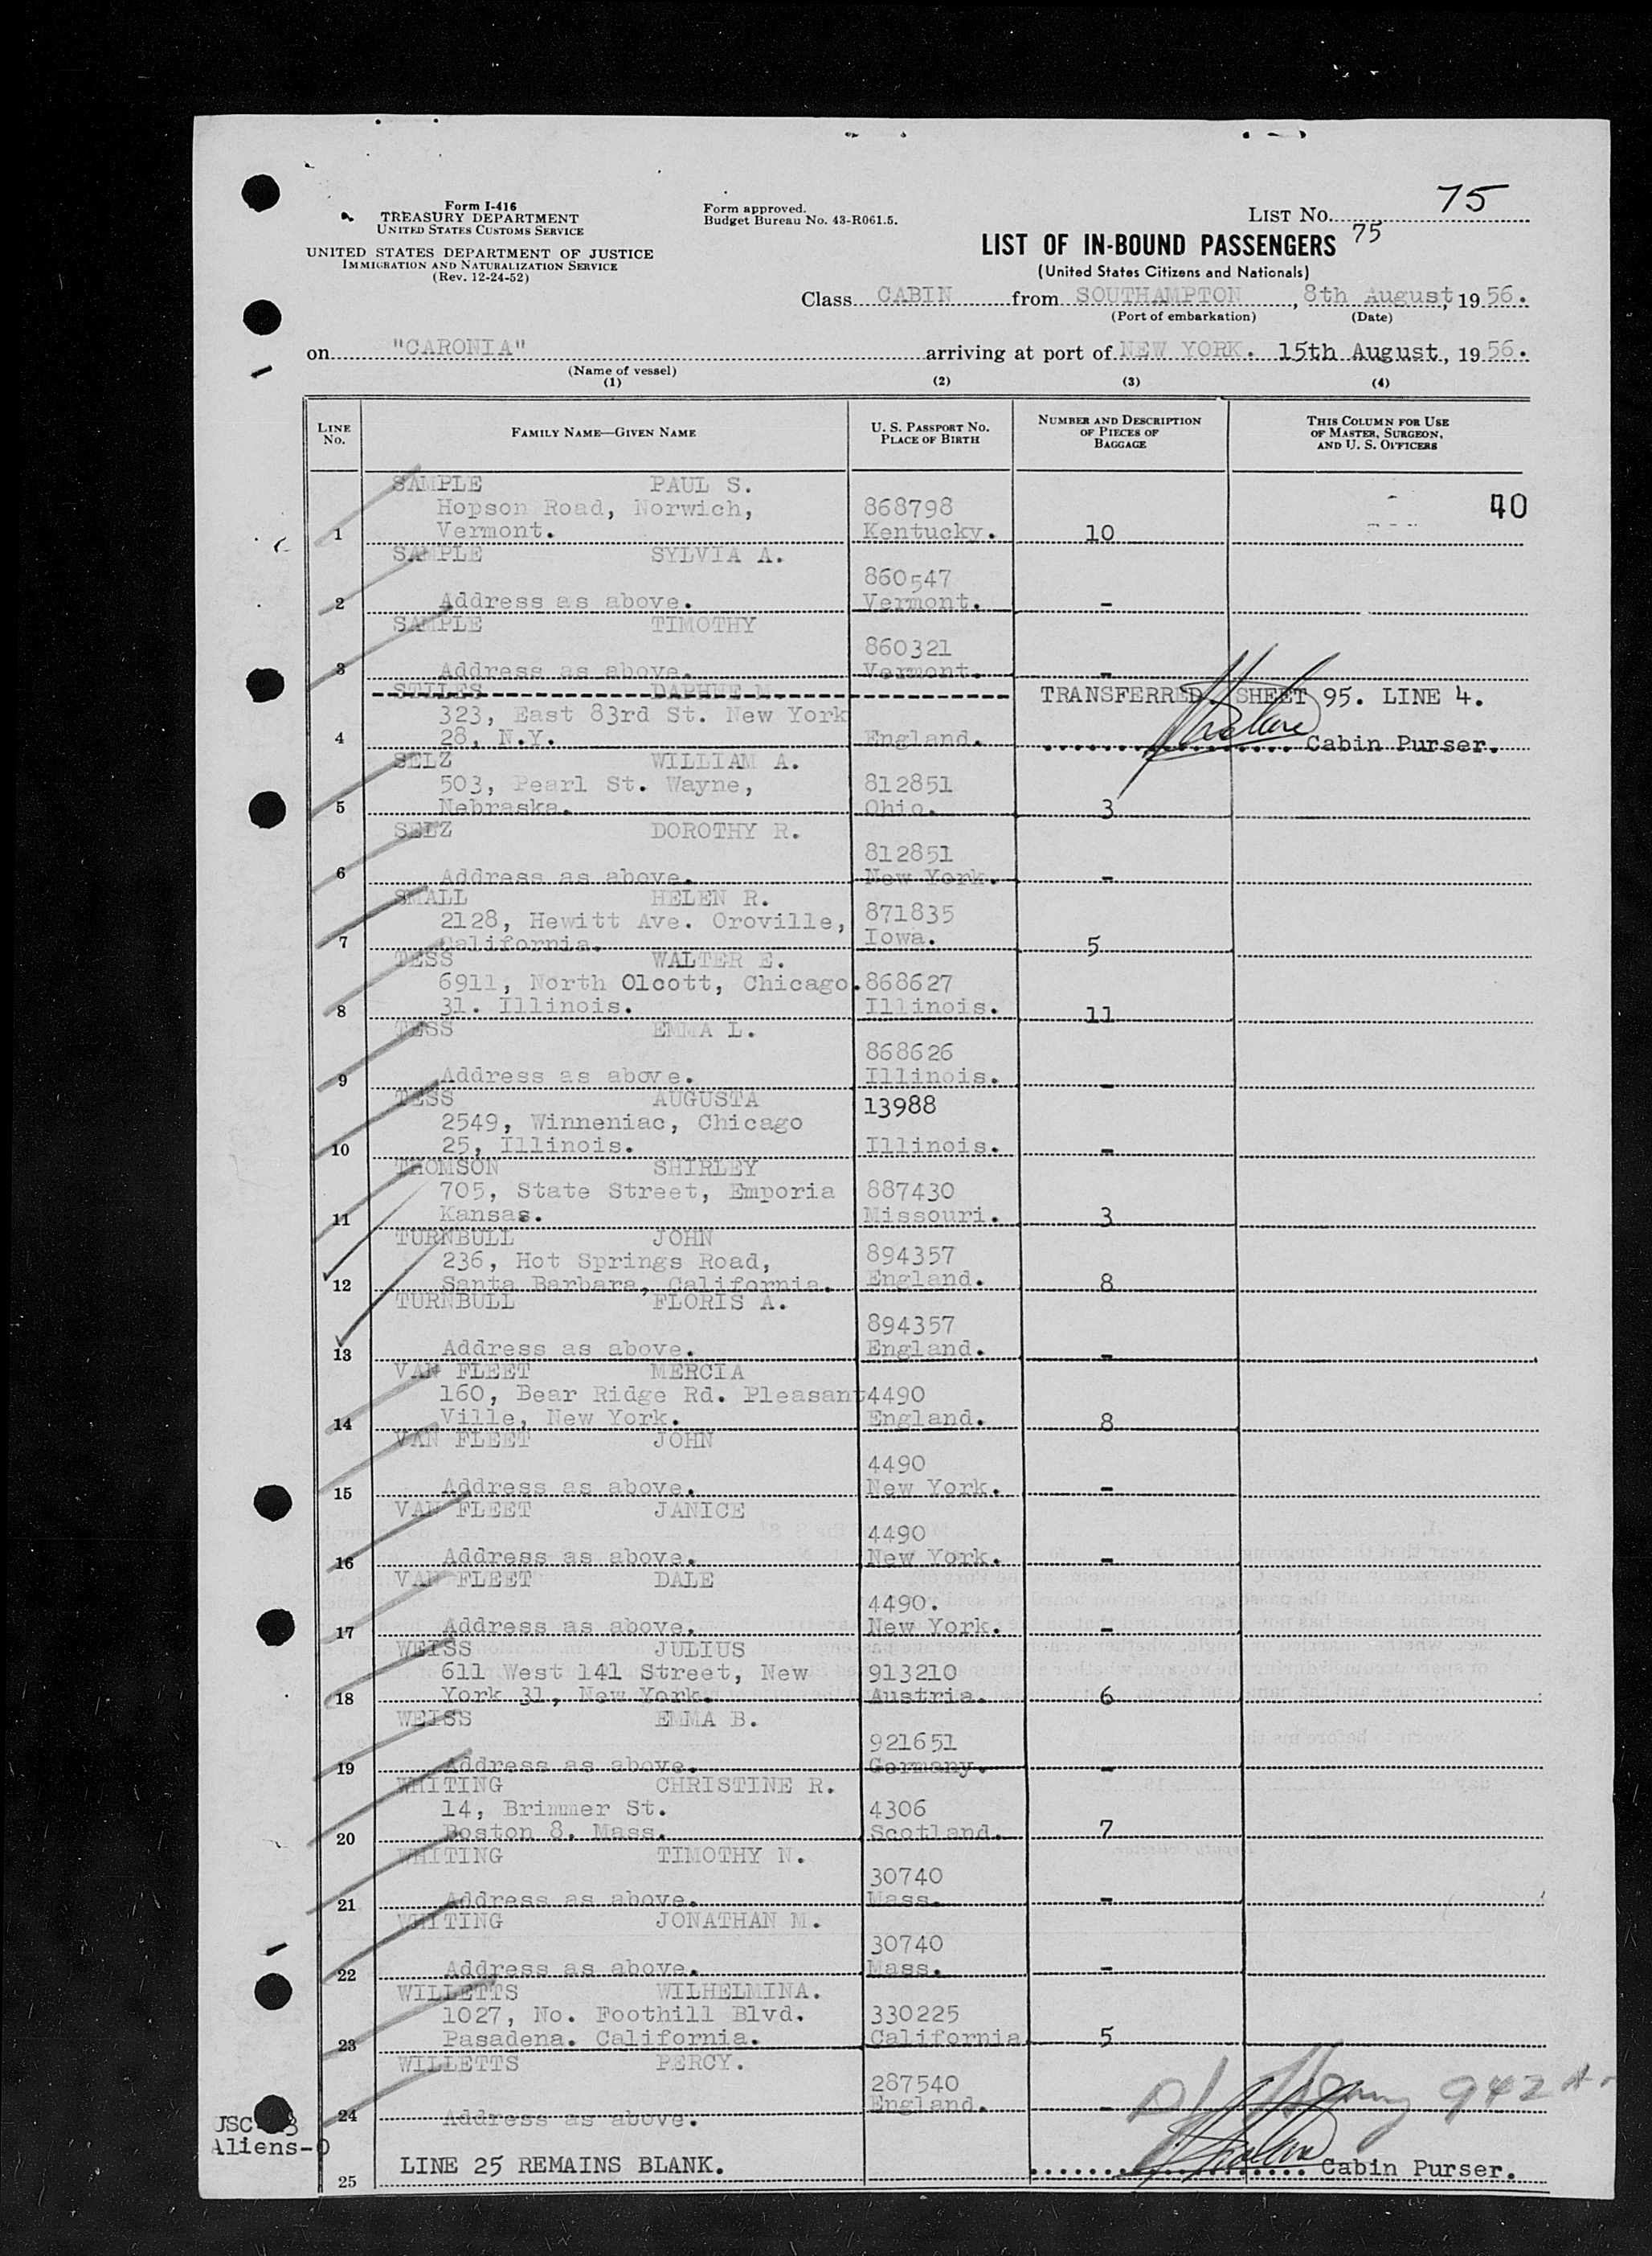 Form I-416
TREASURY DEPARTMENT
UNITED STATES CUSTOMS SERVICE
UNITED STATES DEPARTMENT OF JUSTICE
IMMIGRATION AND NATURALIZATION SERVICE
(Rev. 12-24-52)
Form approved.
Budget Bureau No. 43-R061.5.
LIST No. 75
LIST OF IN-BOUND PASSENGERS 75
(United States Citizens and Nationals)
Class CABIN from SOUTHAMPTON, 8th August, 1956.
(Port of embarkation) (Date)
on "CARONIA" arriving at port of NEW YORK. 15th August, 1956.
(Name of vessel)
(1) (2) (3) (4)
LINE No. FAMILY NAME—GIVEN NAME U. S. PASSPORT No. PLACE OF BIRTH NUMBER AND DESCRIPTION OF PIECES OF BAGGAGE THIS COLUMN FOR USE OF MASTER, SURGEON, AND U. S. OFFICERS
SAMPLE PAUL S.
Hopson Road, Norwich, 868798 40
1 Vermont. Kentucky. 10
SAMPLE SYLVIA A.
860547
2 Address as above. Vermont. -
SAMPLE TIMOTHY
860321
3 Address as above. Vermont. -
STILES DAPHNE M. TRANSFERRED SHEET 95. LINE 4.
323, East 83rd St. New York
4 28, N.Y. England. Cabin Purser.
SELZ WILLIAM A.
503, Pearl St. Wayne, 812851
5 Nebraska. Ohio. 3
SELZ DOROTHY R.
812851
6 Address as above. New York. -
SMALL HELEN R.
2128, Hewitt Ave. Oroville, 871835
7 California. Iowa. 5
TESS WALTER E.
6911, North Olcott, Chicago. 868627
8 31. Illinois. Illinois. 11
TESS EMMA L.
868626
9 Address as above. Illinois. -
TESS AUGUSTA 13988
2549, Winneniac, Chicago
10 25, Illinois. Illinois. -
THOMSON SHIRLEY
705, State Street, Emporia 887430
11 Kansas. Missouri. 3
TURNBULL JOHN
236, Hot Springs Road, 894357
12 Santa Barbara, California. England. 8
TURNBULL FLORIS A.
894357
13 Address as above. England. -
VAN FLEET MERCIA
160, Bear Ridge Rd. Pleasant 4490
14 Ville, New York. England. 8
VAN FLEET JOHN
4490
15 Address as above. New York. -
VAN FLEET JANICE
4490
16 Address as above. New York. -
VAN FLEET DALE
4490.
17 Address as above. New York. -
WEISS JULIUS
611 West 141 Street, New 913210
18 York 31, New York. Austria. 6
WEISS EMMA B.
921651
19 Address as above. Germany. -
WHITING CHRISTINE R.
14, Brimmer St. 4306
20 Boston 8, Mass. Scotland. 7
WHITING TIMOTHY N.
30740
21 Address as above. Mass. -
WHITING JONATHAN M.
30740
22 Address as above. Mass. -
WILLETTS WILHELMINA.
1027, No. Foothill Blvd. 330225
23 Pasadena. California. California 5
WILLETTS PERCY.
287540 942
24 Address as above. England. -
Aliens-0
25 LINE 25 REMAINS BLANK. Cabin Purser.